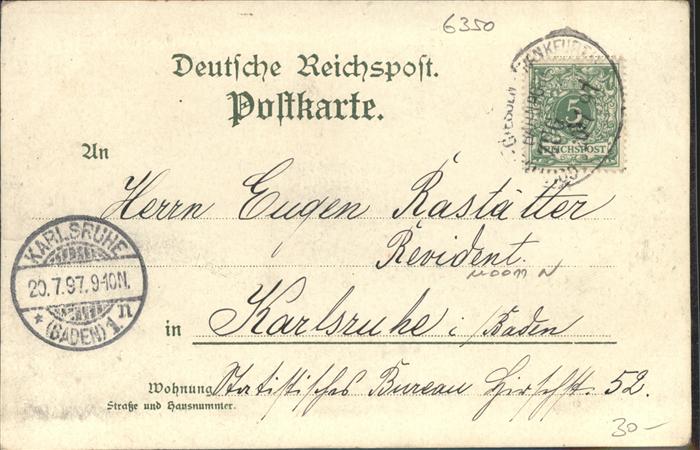 6350
Deutsche Reichspost.
Postkarte.
5
REICHSPOST
An
Herrn Eugen Rastätter
Revident.
KARLSRUHE
20.7.97.9-10N.
(BADEN) 1.n
in Karlsruhe i/Baden
Wohnung Statistisches Bureau Hirschstr. 52.
Straße und Hausnummer.
30-